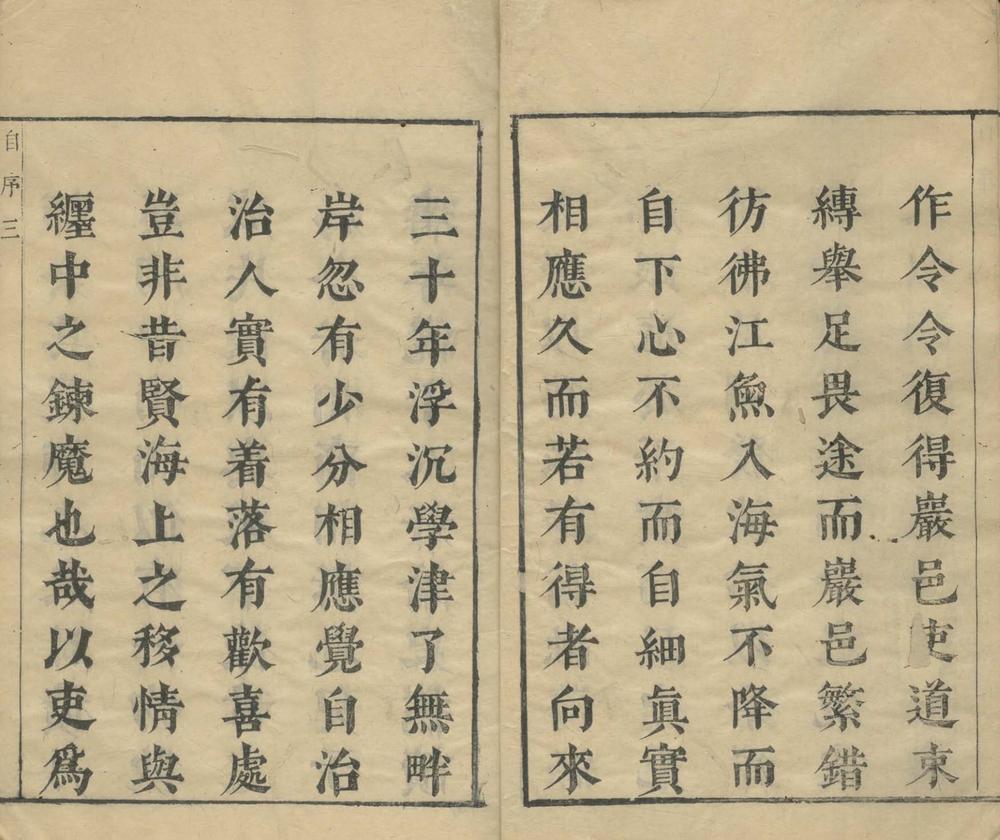 作令令復得嚴邑吏道束
縛舉足畏途而巖邑繁錯
彷彿江鰲入海氣不降而
自下心不約而自細眞實
相應久而若有得者向來
三十年浮沉學津了無畔
岸忽有少分相應覺自治
治人實有着落有歡喜處
豈非昔賢海上之移情與
纏中之鍊魔也哉以吏爲
自序 三